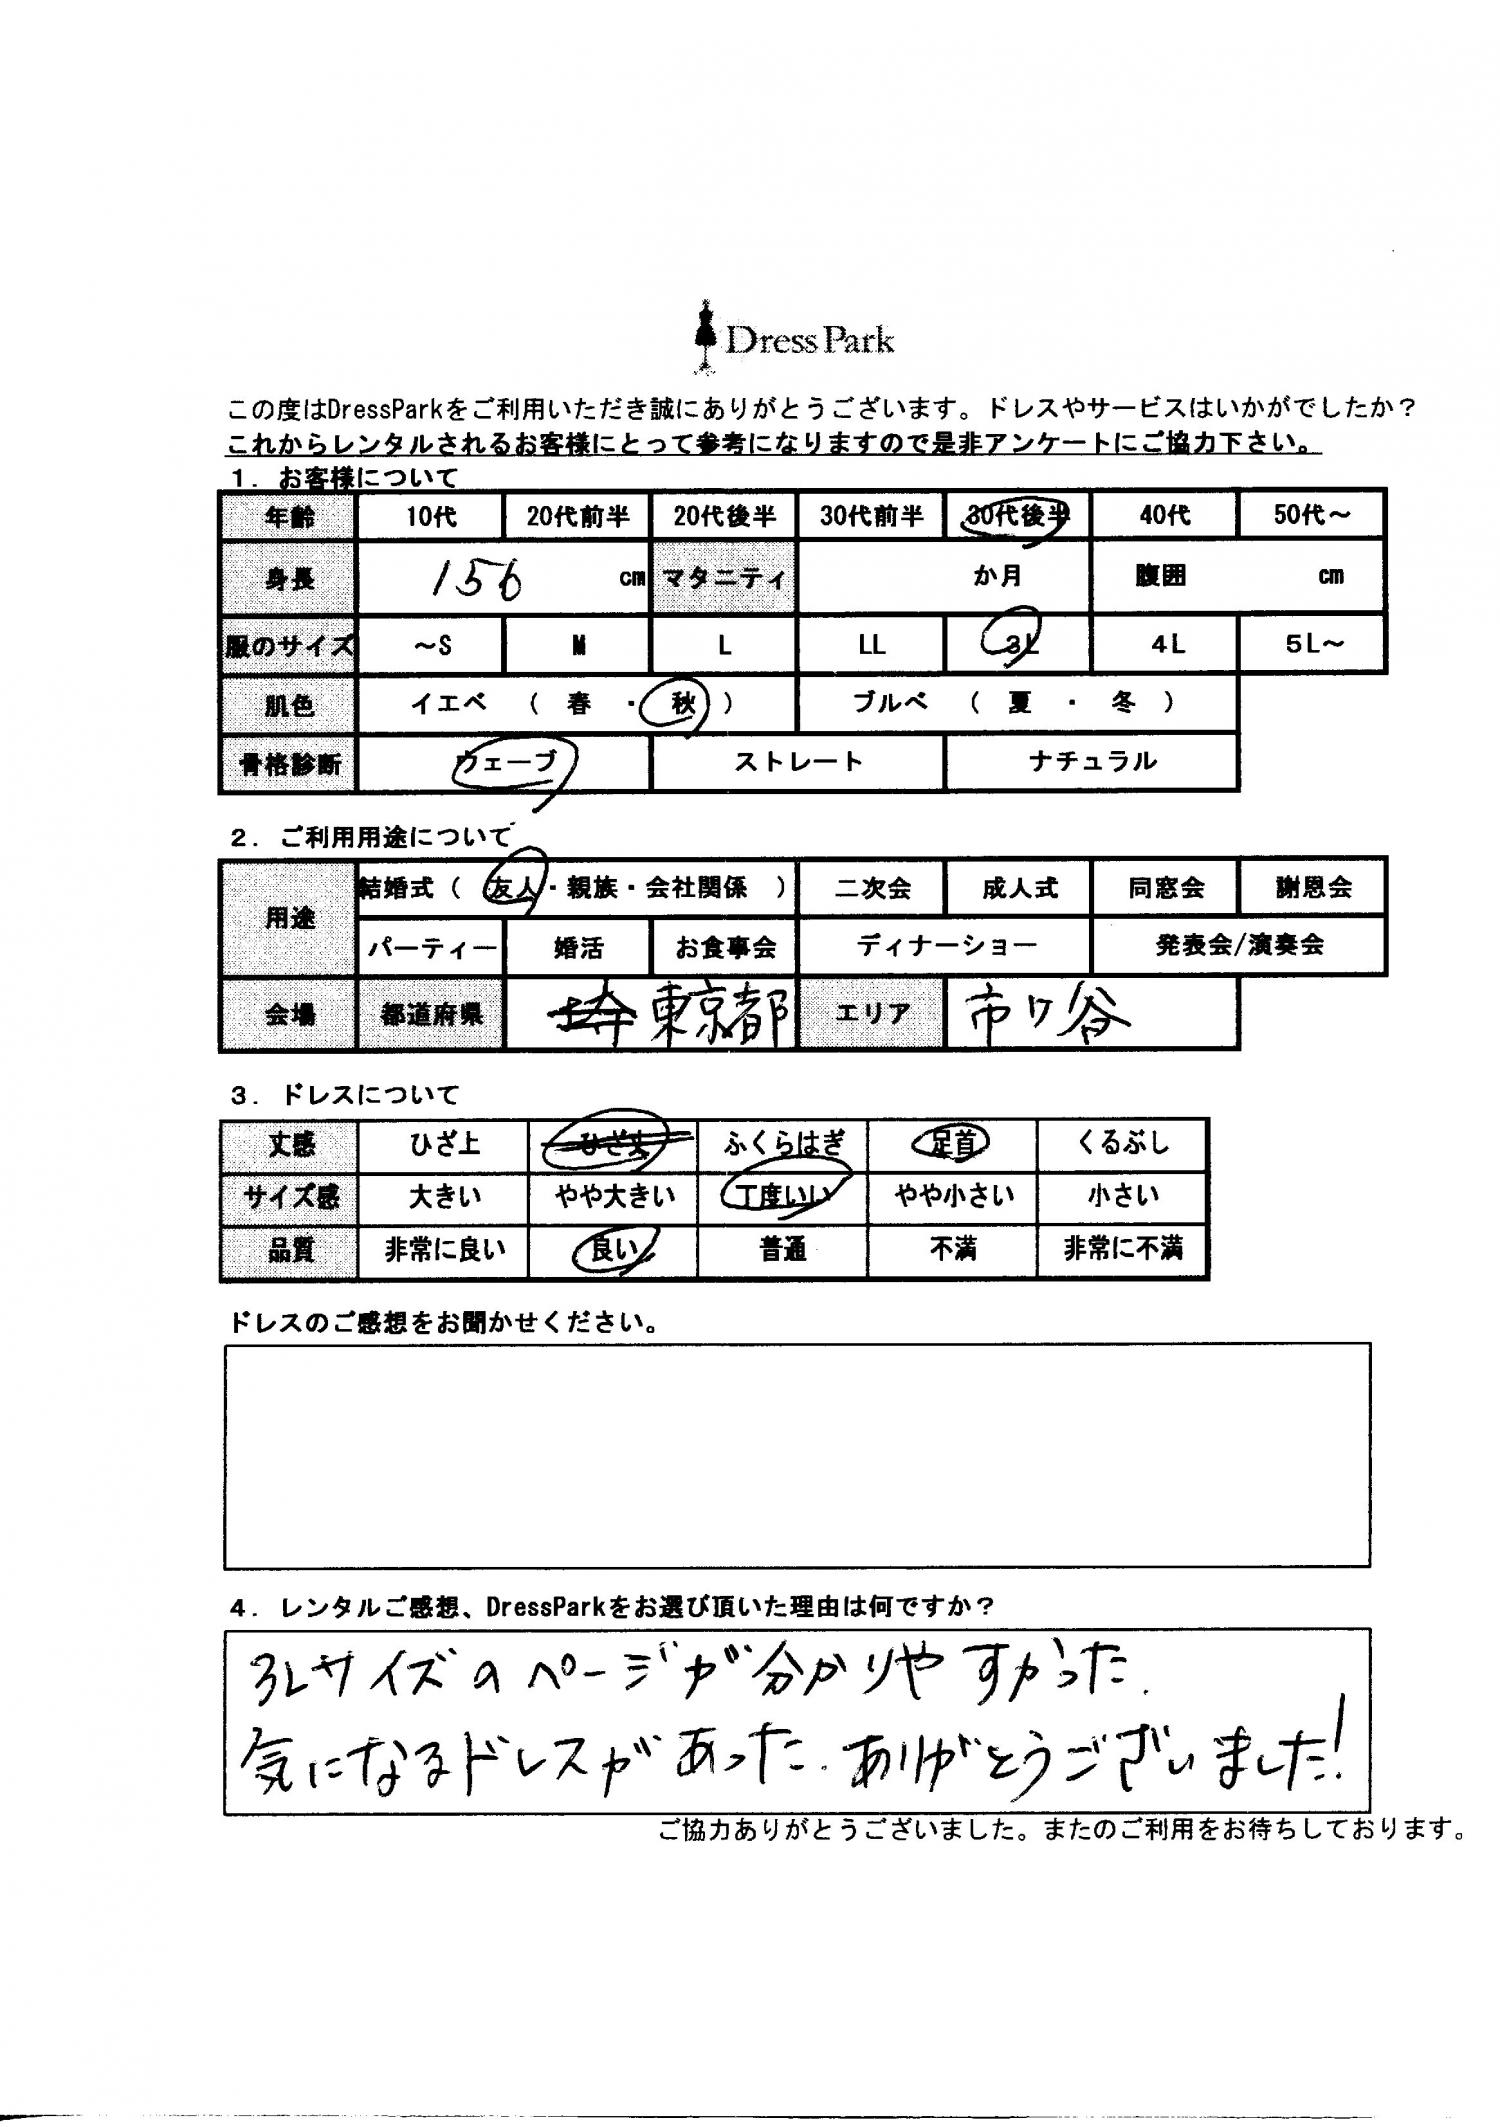 Dress Park
この度はDressParkをご利用いただき誠にありがとうございます。ドレスやサービスはいかがでしたか？
これからレンタルされるお客様にとって参考になりますので是非アンケートにご協力下さい。
1. お客様について
年齢 10代 20代前半 20代後半 30代前半 30代後半 40代 50代～
身長 156 cm マタニティ か月 腹囲 cm
服のサイズ ～S M L LL 3L 4L 5L～
肌色 イエベ （ 春 ・ 秋 ） ブルベ （ 夏 ・ 冬 ）
骨格診断 ウェーブ ストレート ナチュラル
2. ご利用用途について
用途 結婚式（ 友人・親族・会社関係 ） 二次会 成人式 同窓会 謝恩会
パーティー 婚活 お食事会 ディナーショー 発表会/演奏会
会場 都道府県 埼 東京都 エリア 市ヶ谷
3. ドレスについて
丈感 ひざ上 ひざ丈 ふくらはぎ 足首 くるぶし
サイズ感 大きい やや大きい 丁度いい やや小さい 小さい
品質 非常に良い 良い 普通 不満 非常に不満
ドレスのご感想をお聞かせください。
4. レンタルご感想、DressParkをお選び頂いた理由は何ですか？
3Lサイズのページが分かりやすかった.
気になるドレスがあった. ありがとうございました!
ご協力ありがとうございました。またのご利用をお待ちしております。